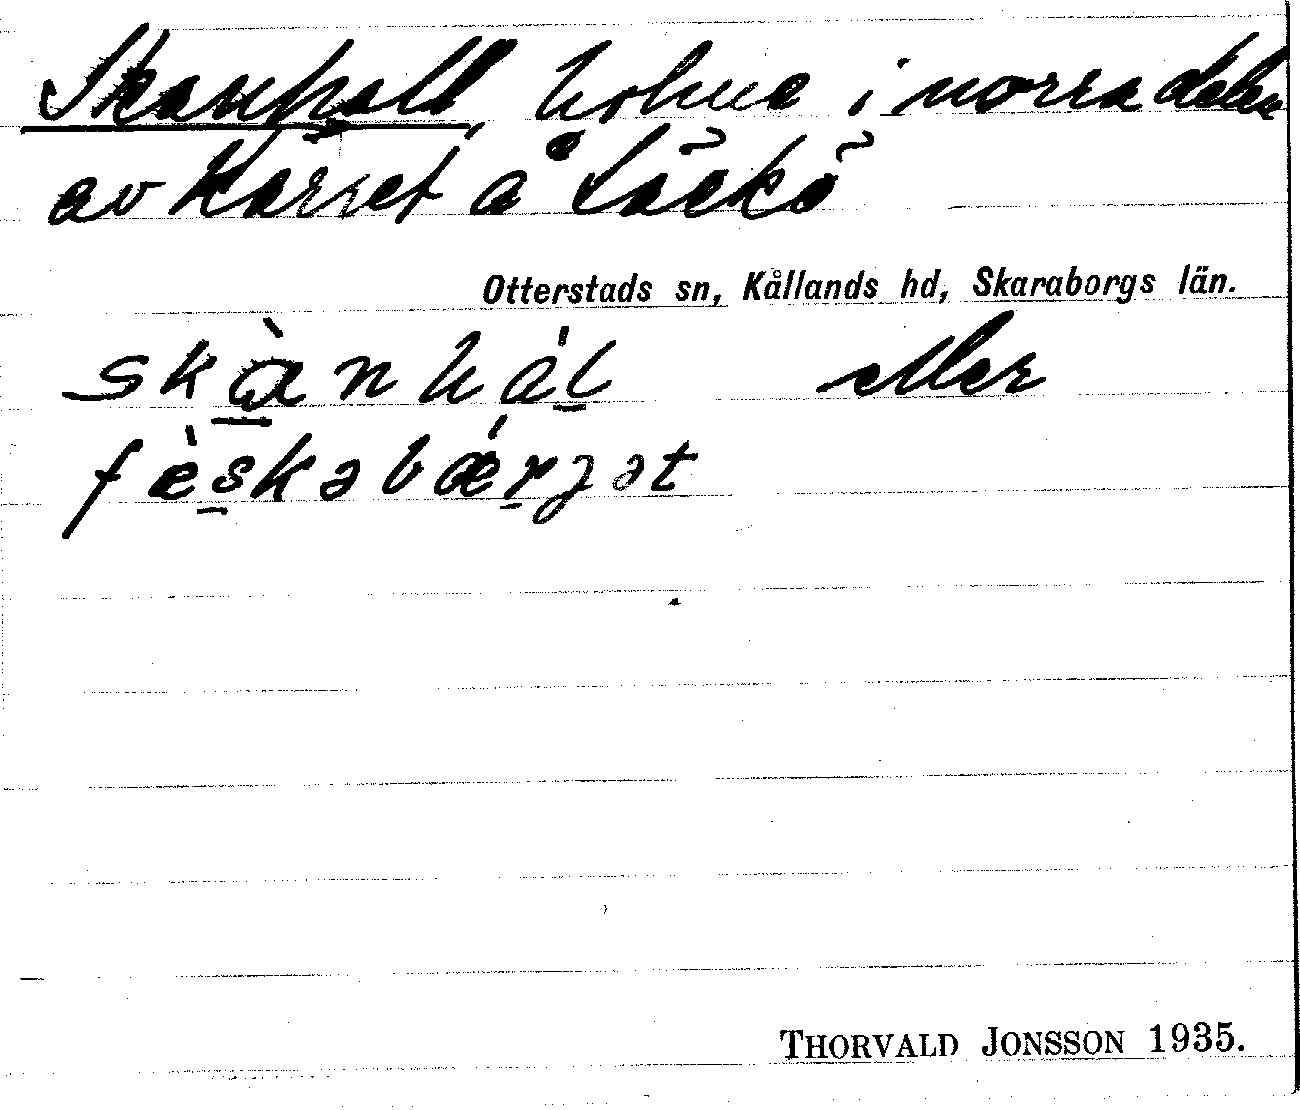 Skanhall, holme i norra delen
av Kärret å Läckö
Otterstads sn, Kållands hd, Skaraborgs län.
skànhál eller
fèskəbǽrjət
THORVALD JONSSON 1935.